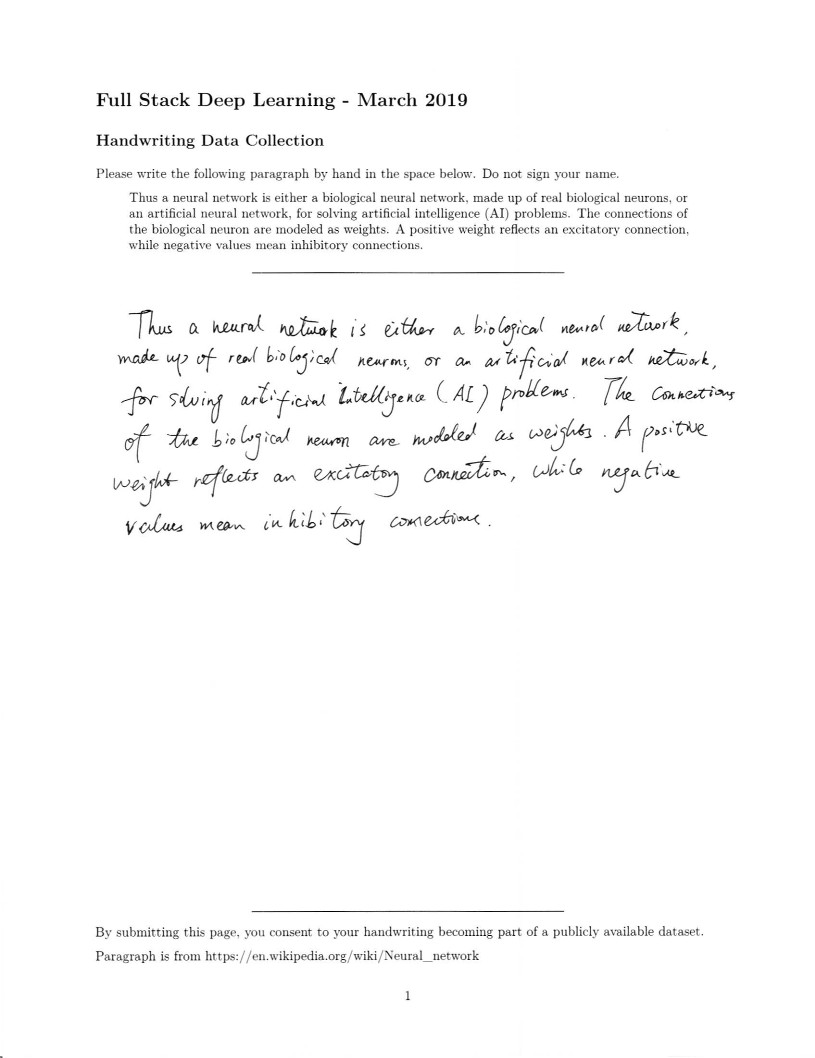 Full Stack Deep Learning - March 2019
Handwriting Data Collection
Please write the following paragraph by hand in the space below. Do not sign your name.
Thus a neural network is either a biological neural network, made up of real biological neurons, or
an artificial neural network, for solving artificial intelligence (AI) problems. The connections of
the biological neuron are modeled as weights. A positive weight reflects an excitatory connection,
while negative values mean inhibitory connections.
Thus a neural network is either a biological neural network,
made up of real biological neurons, or an artificial neural network,
for solving artificial Intelligence (AI) problems. The Connections
of the biological neuron are modeled as weights. A positive
weight reflects an excitatory connection, while negative
values mean inhibitory connections.
By submitting this page, you consent to your handwriting becoming part of a publicly available dataset.
Paragraph is from https://en.wikipedia.org/wiki/Neural_network
1